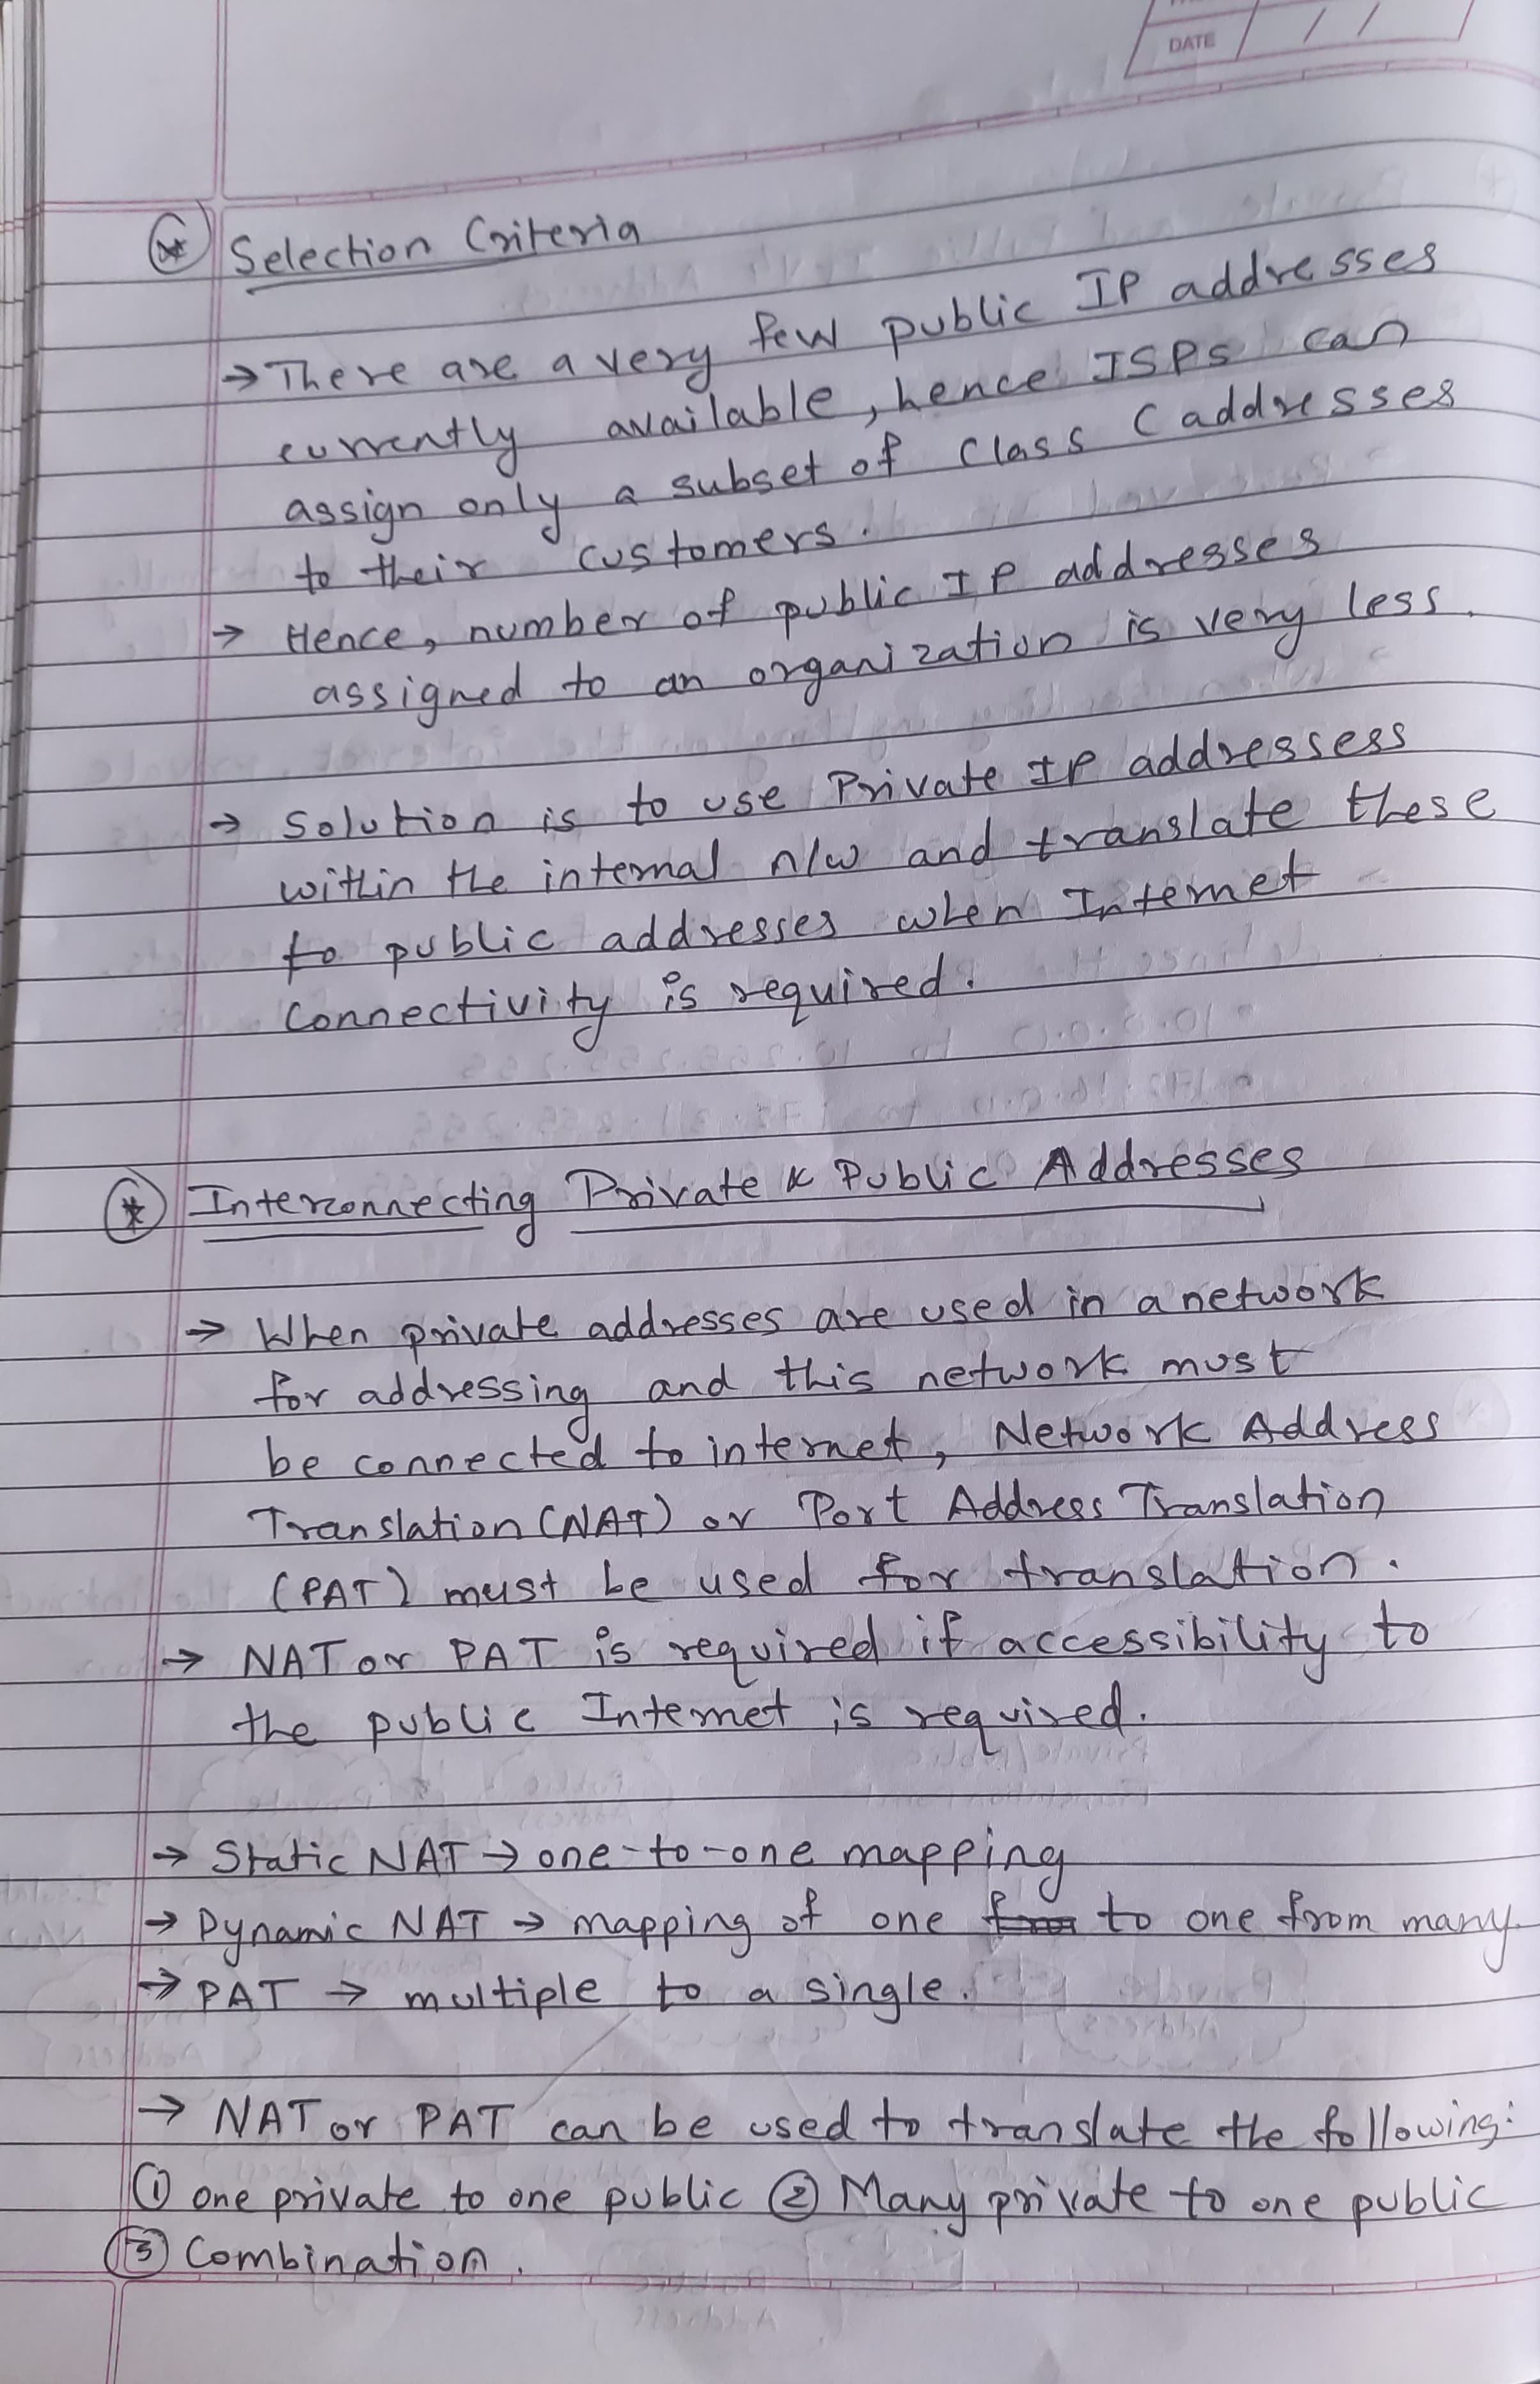 DATE / /
Selection Criteria
→ There are a very few public IP addresses
currently available, hence ISPs can
assign only a subset of Class C addresses
to their customers.
→ Hence, number of public IP addresses
assigned to an organization is very less.
→ Solution is to use Private IP addressess
within the internal n/w and translate these
to public addresses when Internet
Connectivity is required.
Interconnecting Private & Public Addresses
→ When private addresses are used in a network
for addressing and this network must
be connected to internet, Network Address
Translation (NAT) or Port Address Translation
(PAT) must be used for translation.
→ NAT or PAT is required if accessibility to
the public Internet is required.
→ Static NAT → one-to-one mapping
→ Dynamic NAT → mapping of one to one from many.
→ PAT → multiple to a single.
→ NAT or PAT can be used to translate the following:
① one private to one public ② Many private to one public
③ Combination.